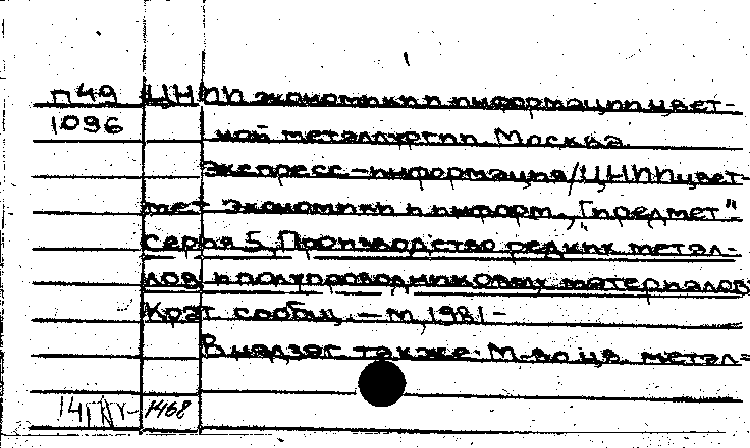 П49 ЦНИИ экономики и информации цвет-
1096 ной металлургии. Москва.
Экспресс-информация/ЦНИИцвет-
мет экономики и информ., [предмет"
Серия 5 „Производство редких метал-
лов и полупроводниковых материалов
Крат. сообщ. - М, 1981 -
В надзаг. также: М-во цв. метал-
1468